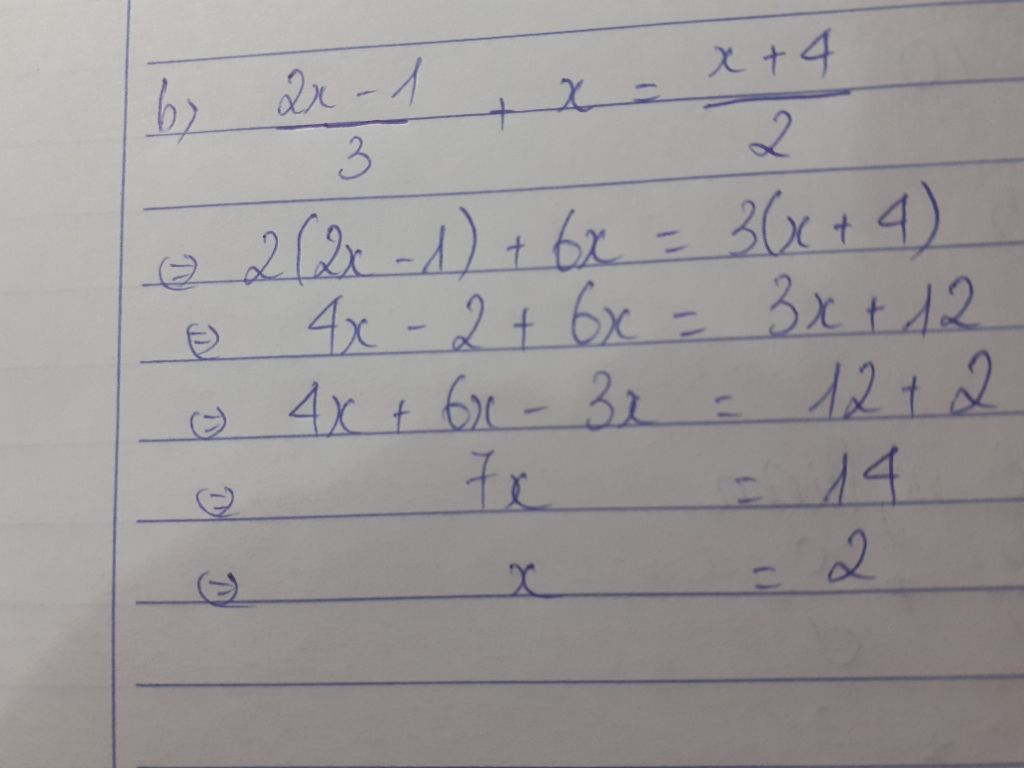 b) (2x - 1)/3 + x = (x + 4)/2
⇔ 2(2x - 1) + 6x = 3(x + 4)
⇔ 4x - 2 + 6x = 3x + 12
⇔ 4x + 6x - 3x = 12 + 2
⇔ 7x = 14
⇔ x = 2